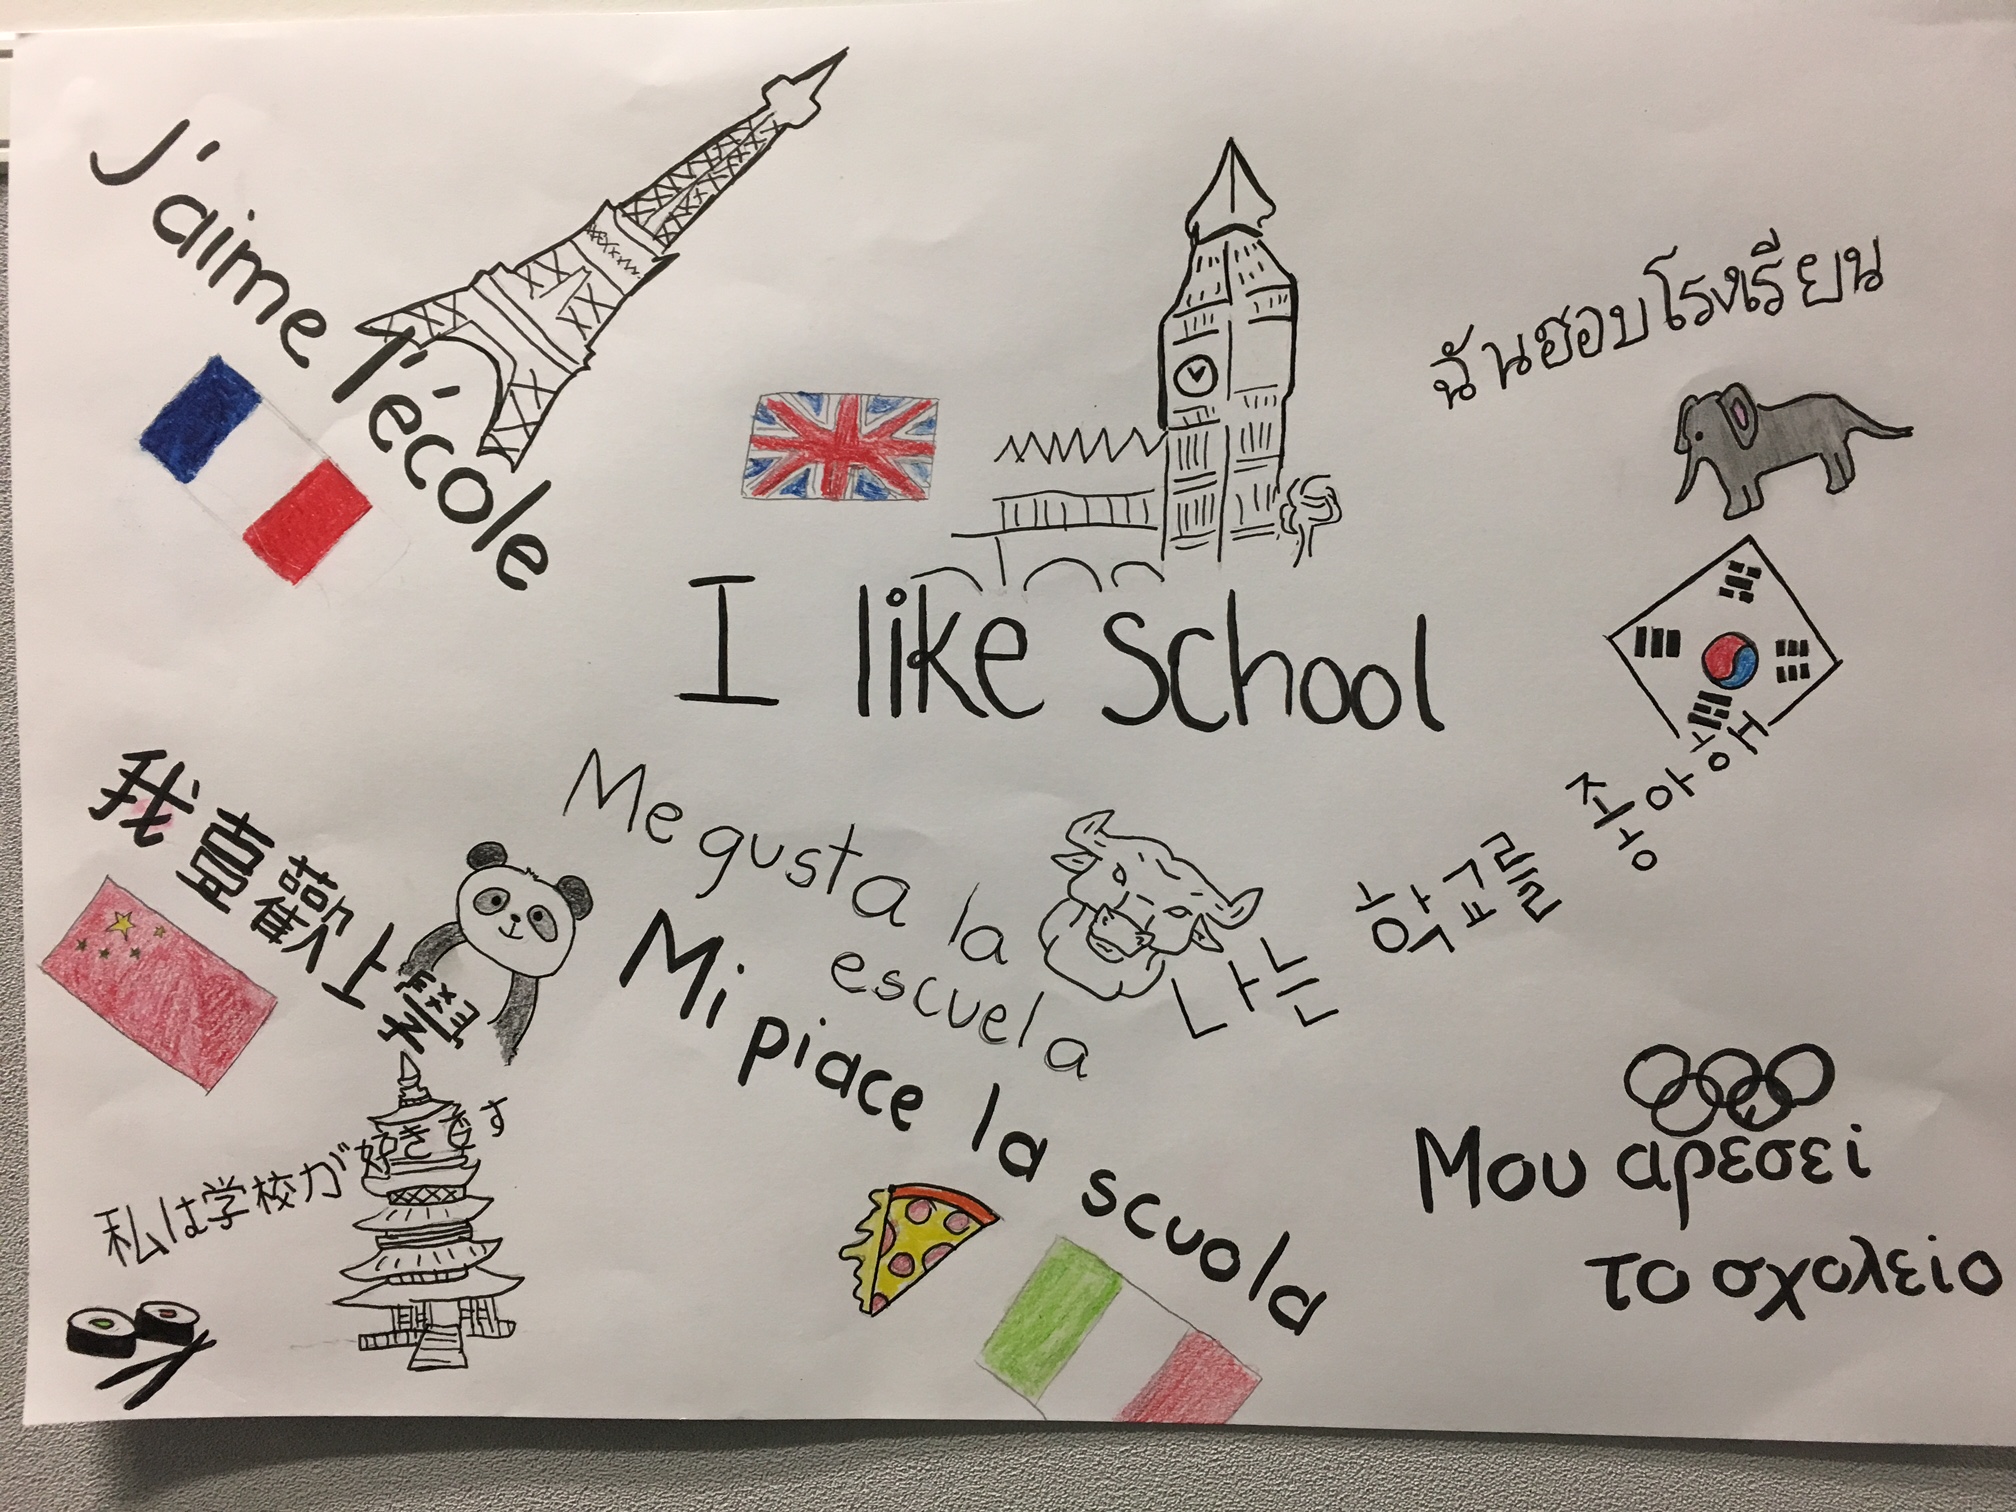 J'aime l'école
ฉันชอบโรงเรียน
I like school
我喜歡上學
Me gusta la
escuela
나는 학교를 좋아해
Mi piace la scuola
私は学校が好きです
Μου αρεσει
το σχολείο